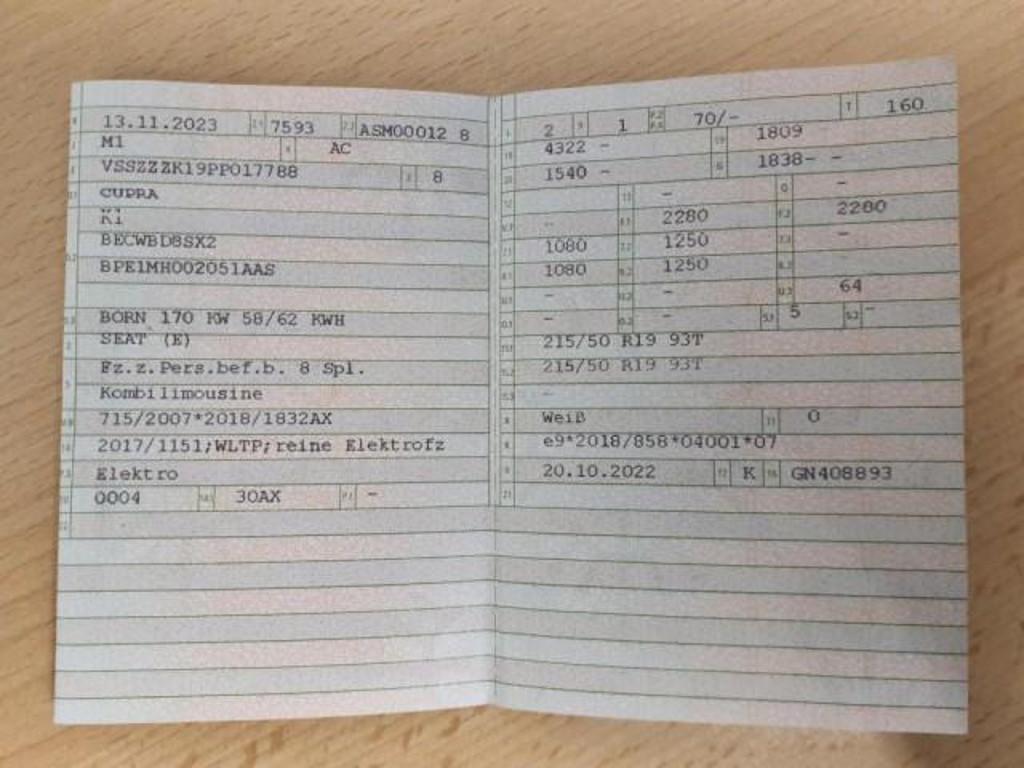 13.11.2023 7593 ASM00012 8
M1 AC
VSSZZZK19PP017788 8
CUPRA
K1
BECWBD8SX2
BPE1MH002051AAS
BORN 170 KW 58/62 KWH
SEAT (E)
Fz.z.Pers.bef.b. 8 Spl.
Kombilimousine
715/2007*2018/1832AX
2017/1151;WLTP;reine Elektrofz
Elektro
0004 30AX -
2 1 70/- 160
4322 - 1809
1540 - 1838- -
- -
- 2280 2280
1080 1250 -
1080 1250
- - 64
- - 5 -
215/50 R19 93T
215/50 R19 93T
-
Weiß 0
e9*2018/858*04001*07
20.10.2022 K GN408893